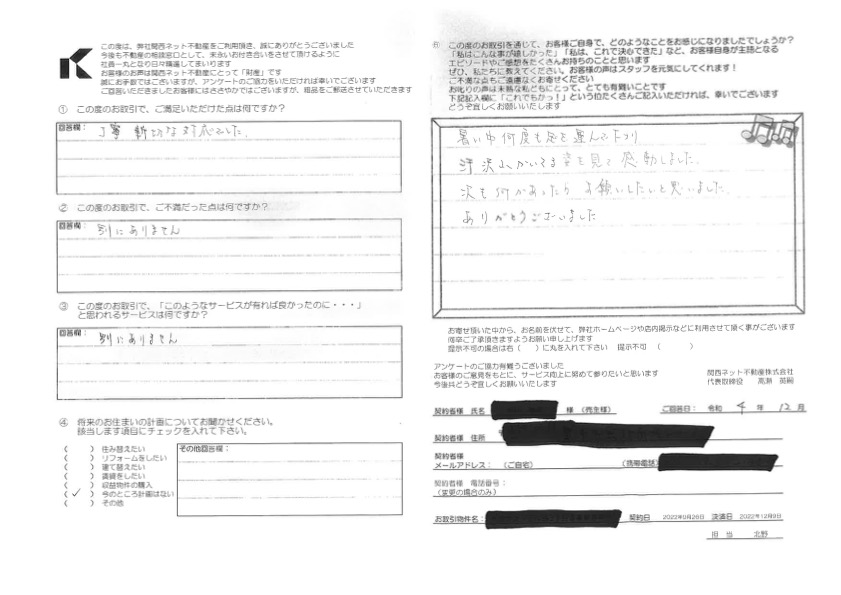 この度は、弊社関西ネット不動産をご利用頂き、誠にありがとうございました
今後も不動産の相談窓口として、末永いお付き合いをさせて頂けるように
社員一丸となり日々精進してまいります
お客様のお声は関西ネット不動産にとって「財産」です
誠にお手数ではございますが、アンケートのご協力をいただければ幸いでございます
ご回答いただきましたお客様にはささやかではございますが、粗品をご郵送させていただきます
① この度のお取引で、ご満足いただけた点は何ですか?
回答欄:
丁寧 親切な対応でした。
② この度のお取引で、ご不満だった点は何ですか?
回答欄:
別にありません
③ この度のお取引で、「このようなサービスが有れば良かったのに・・・」
と思われるサービスは何ですか?
回答欄:
別にありません
④ 将来のお住まいの計画についてお聞かせください。
該当します項目にチェックを入れて下さい。
( ) 住み替えたい
( ) リフォームをしたい
( ) 建て替えたい
( ) 賃貸をしたい
( ) 収益物件の購入
(✓) 今のところ計画はない
( ) その他
その他回答欄:
この度のお取引を通じて、お客様ご自身で、どのようなことをお感じになりましたでしょうか?
「私はこんな事が嬉しかった」「私は、これで決心できた」など、お客様自身が主語となる
エピソードやご感想をたくさんお持ちのことと思います
ぜひ、私たちに教えてください。お客様の声はスタッフを元気にしてくれます!
ご不満な点もご遠慮なくお寄せください
お叱りの声は未熟な私どもにとって、とても有難いことです
下記記入欄に「これでもかっ!」という位たくさんご記入いただければ、幸いでございます
どうぞ宜しくお願いいたします
暑い中何度も足を運んで下さり
汗沢山かいてる姿を見て感動しました。
次も何かあったらお願いしたいと思いました。
ありがとうございました
お寄せ頂いた中から、お名前を伏せて、弊社ホームページや店内掲示などに利用させて頂く事がございます
何卒ご了承頂きますようお願い申し上げます
提示不可の場合は右( )に丸を入れて下さい 提示不可 ( )
アンケートのご協力有難うございました
お客様のご意見をもとに、サービス向上に努めて参りたいと思います
今後共どうぞ宜しくお願いいたします
関西ネット不動産株式会社
代表取締役 高瀬 英嗣
契約者様 氏名 様(売主様) ご回答日: 令和 4 年 12 月
契約者様 住所
契約者様
メールアドレス: (ご自宅) (携帯電話)
契約者様 電話番号:
(変更の場合のみ)
お取引物件名: 契約日 決済日 2022年12月9日
担 当 北野